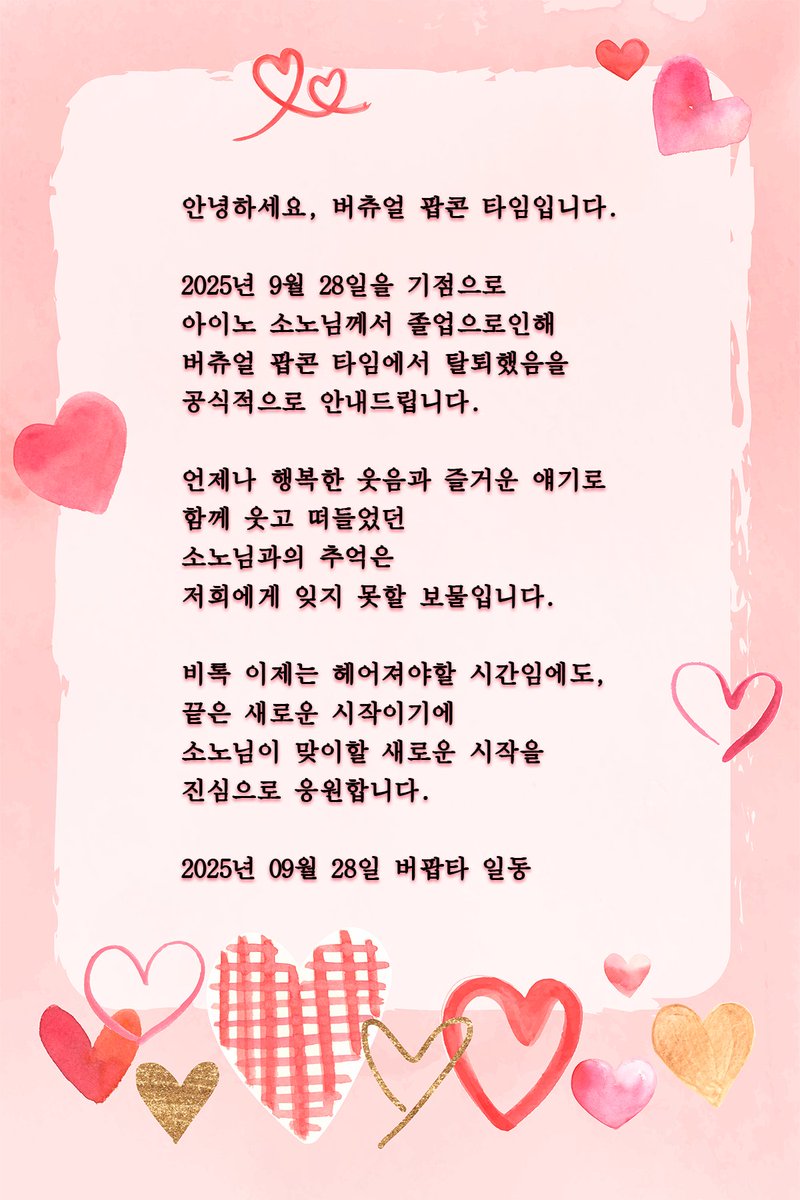 안녕하세요, 버츄얼 팝콘 타임입니다.
2025년 9월 28일을 기점으로
아이노 소노님께서 졸업으로인해
버츄얼 팝콘 타임에서 탈퇴했음을
공식적으로 안내드립니다.
언제나 행복한 웃음과 즐거운 얘기로
함께 웃고 떠들었던
소노님과의 추억은
저희에게 잊지 못할 보물입니다.
비록 이제는 헤어져야할 시간임에도,
끝은 새로운 시작이기에
소노님이 맞이할 새로운 시작을
진심으로 응원합니다.
2025년 09월 28일 버팝타 일동